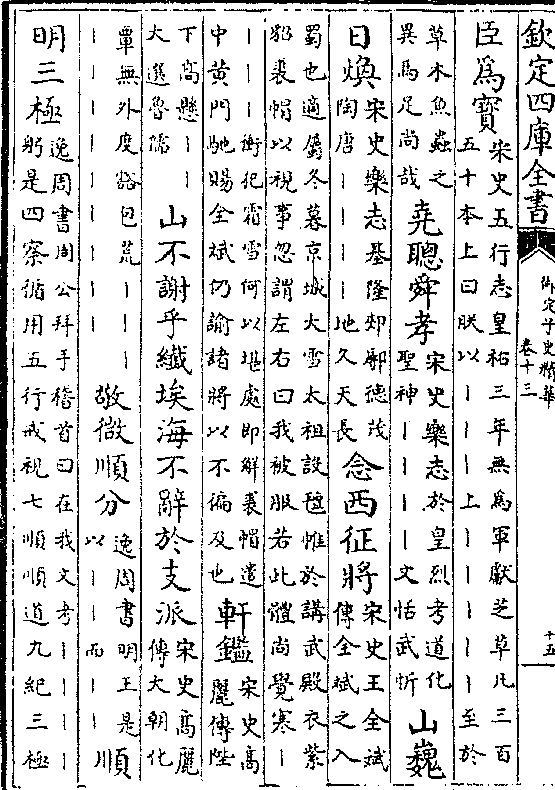 欽定四庫全書 御定子史精華 卷十三 十五
臣為寶 宋史五行志皇祐三年無為軍獻芝草凡三百
五十本上曰朕以丨丨丨上丨丨丨丨丨至於
草木魚蟲之
異焉足尚哉 堯聰舜孝 宋史樂志於皇烈考道化
聖神丨丨丨丨文恬武忻 山巍
日煥 宋史樂志基隆郟鄏德茂
陶唐丨丨丨丨地久天長 念西征將 宋史王全斌
傳全斌之入
蜀也適屬冬暮京城大雪太祖設氊帷於講武殿衣紫
貂裘帽以視事忽謂左右曰我被服若此體尚覺寒丨
丨丨丨衝犯霜雪何以堪處即解裘帽遣
中黄門馳賜全斌仍諭諸將以不徧及也 軒鑑 宋史高
麗傳陛
下高懸丨丨
大選魯儒 山不謝乎纖埃海不辭於支派 宋史高麗
傳大朝化
覃無外度豁包荒丨丨丨
丨丨丨丨丨丨丨丨丨 敬微順分 逸周書明王是
以丨丨而丨丨 順
明三極 逸周書周公拜手稽首曰在我文考丨丨丨丨
躬是四察循用五行戒視七順順道九紀三極